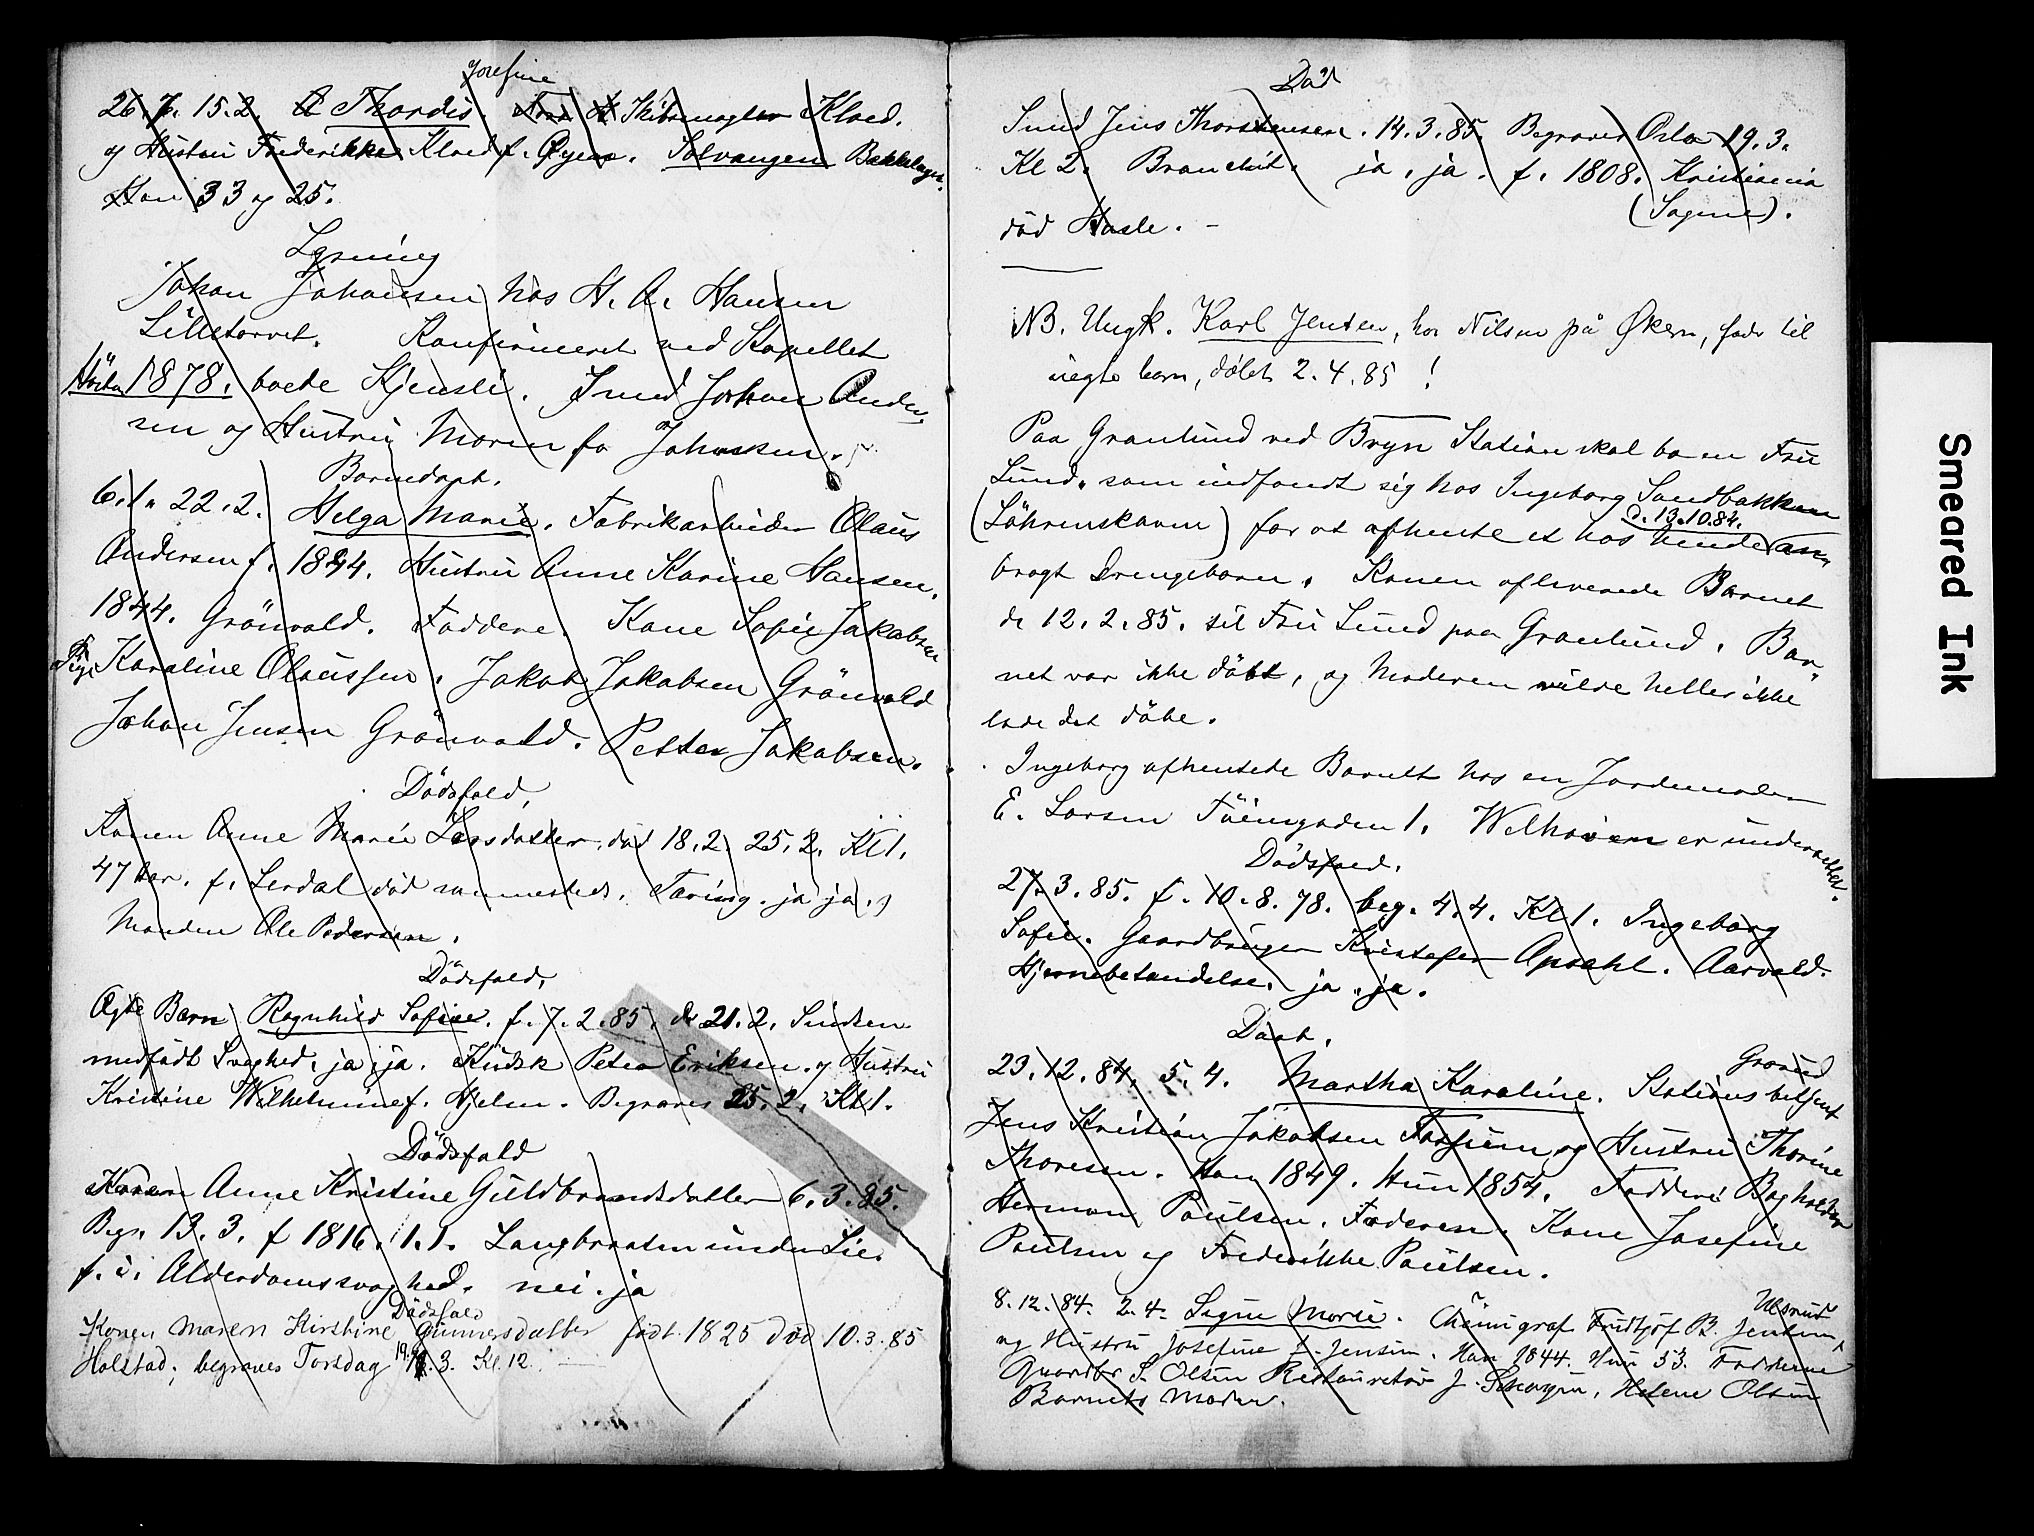 Josefine
26.7. 15.2. Thordis. Skibsmægler Kloed.
og Hustru Frederikke Kloed f. Øyen. Solvangen Bækkelaget.
Han 33 og 25.
Lysning
Johan Johansen hos H. A. Hansen
Lilletorvet. Konfirmeret ved Kapellet
Høsten 1878. boede Kjensli. Smed Johan Ander-
sen og Hustru Maren fø Johnsen.
Barnedaab.
6.1. 22.2. Helga Marie. Fabrikarbeider Olaus
Andersen f. 1844. Hustru Anne Karine Hansen.
1844. Grönvold. Faddere. Kone Sofie Jakobsen
Pige Karoline Olaussen. Jakob Jakobsen Grönvold
Johan Jensen Grönvold. Petter Jakobsen.
Dödsfald.
Konen Anne Marie Larsdatter. död 18.2. 25.2. Kl 1.
47 Aar. f. Lerdal död sammesteds. Tæring. ja ja.
Manden Ole Pedersen.
Dödsfald.
Ægte Barn Ragnhild Sofie. f. 7.2.85. d. 21.2. Sinsen
medfödt Svaghed. ja ja. Kudsk Peter Eriksen og Hustru
Kristine Wilhelmine f. Hjelm. Begraves 25.2. Kl 1.
Dödsfald
Konen Anne Kristine Guldbrandsdatter 6.3.85.
Begr. 13.3. f 1816. 1.1. Langbraaten under Lie.
f. i. Alderdomssvaghed. nei. ja
Dödsfald
Konen Maren Kirstine Gunnersdatter født 1825 död 10.3.85
Holstad; begraves Torsdag 19.3. Kl. 12.
Död
Smed Jens Thorstensen. 14.3.85. Begraves Oslo 19.3.
Kl 2. Bronchit. ja. ja. f. 1808. Kristiania
(Sagene).
död Hasle. -
NB. Ungk. Karl Jensen, hos Nilsen på Økern, fader til
uegte barn, døbt 2.4.85 !
Paa Granlund ved Bryn Station skal bo en Fru
Lund, som indfandt sig hos Ingeborg Sandbakken
(Löhrenskoven) for at afhente et hos hende d. 13.10.84. an-
bragt Drengebarn. Konen afleverede Barnet
d. 12.2.85. til Fru Lund paa Granlund. Bar-
net var ikke döbt, og Moderen vilde heller ikke
lade det döbe.
Ingeborg afhentede Barnet hos en Jordemoder
E. Larsen Töiengaden 1. Welhaven er underrettet.
Dödsfald.
27.3.85. f. 10.8.78. beg. 4.4. Kl 1. Ingeborg
Sofie. Gaardbruger Kristofer Opsahl. Aarvold.
Hjernebetændelse. ja. ja.
Daab.
23.12.84. 5.4. Martha Karoline. Stationsbetjent Grorud
Jens Kristian Jakobsen Fossum og Hustru Thorine
Thoresen. Han 1849. Hun 1854. Faddere Bogholder
Herman Paulsen. Faderen. Kone Josefine
Paulsen og Frederikke Paulsen.
8.12.84. 2.4. Signe Marie. Chemigraf Fridtjof B. Jensen, Ulsrud
og Hustru Josefine f. Jensen. Han 1844. Hun 53. Fadderne
Gaardbr S. Olsen Restauratør J. Skogen, Helene Olsen
Barnets Moder.
Smeared Ink